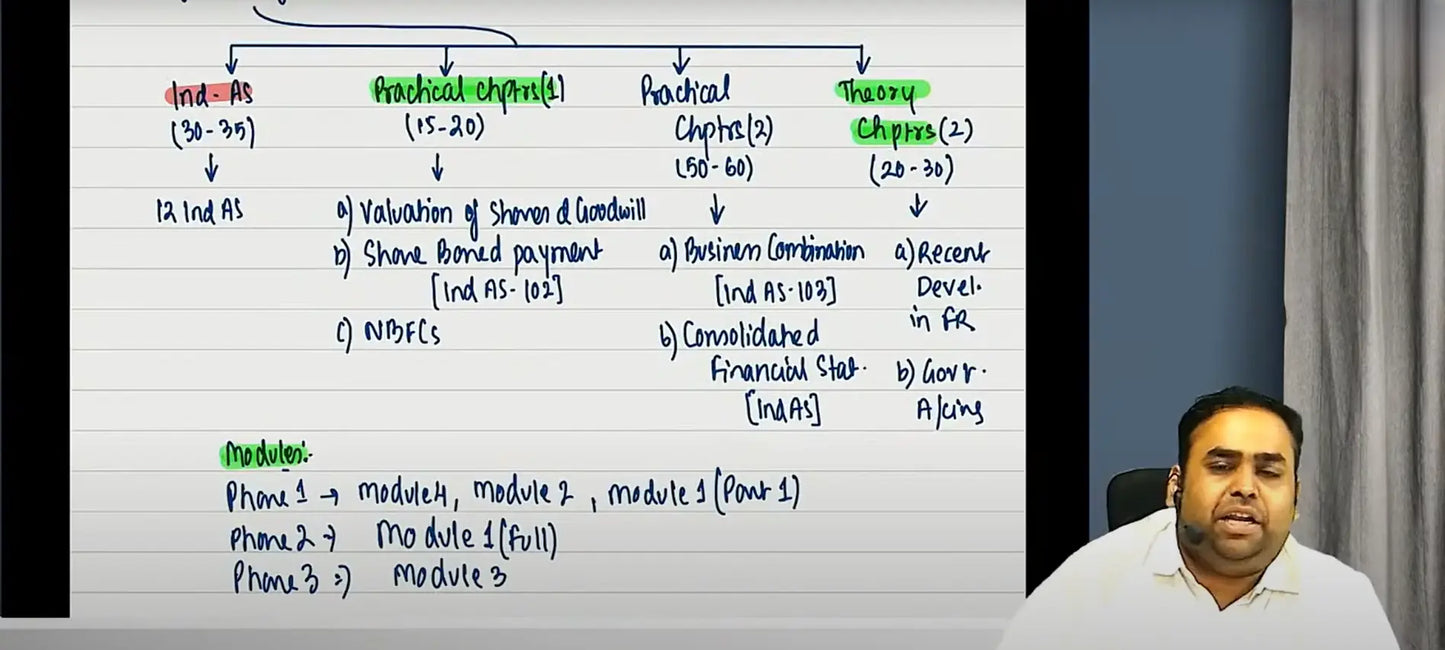 Ind-AS
(30-35)
↓
12 Ind AS
Practical Chptrs(1)
(15-20)
↓
a) Valuation of Shares & Goodwill
b) Share Based payment
[Ind AS-102]
c) NBFCs
Practical
Chptrs(2)
(50-60)
↓
a) Business Combination
[Ind AS-103]
b) Consolidated
Financial Stat.
[Ind AS]
Theory
Chptrs(2)
(20-30)
↓
a) Recent
Devel.
in FR
b) Govt.
A/cing
Modules:-
Phase 1 → module 4, module 2, module 1 (Part 1)
Phase 2 → Module 1 (Full)
Phase 3 :) Module 3